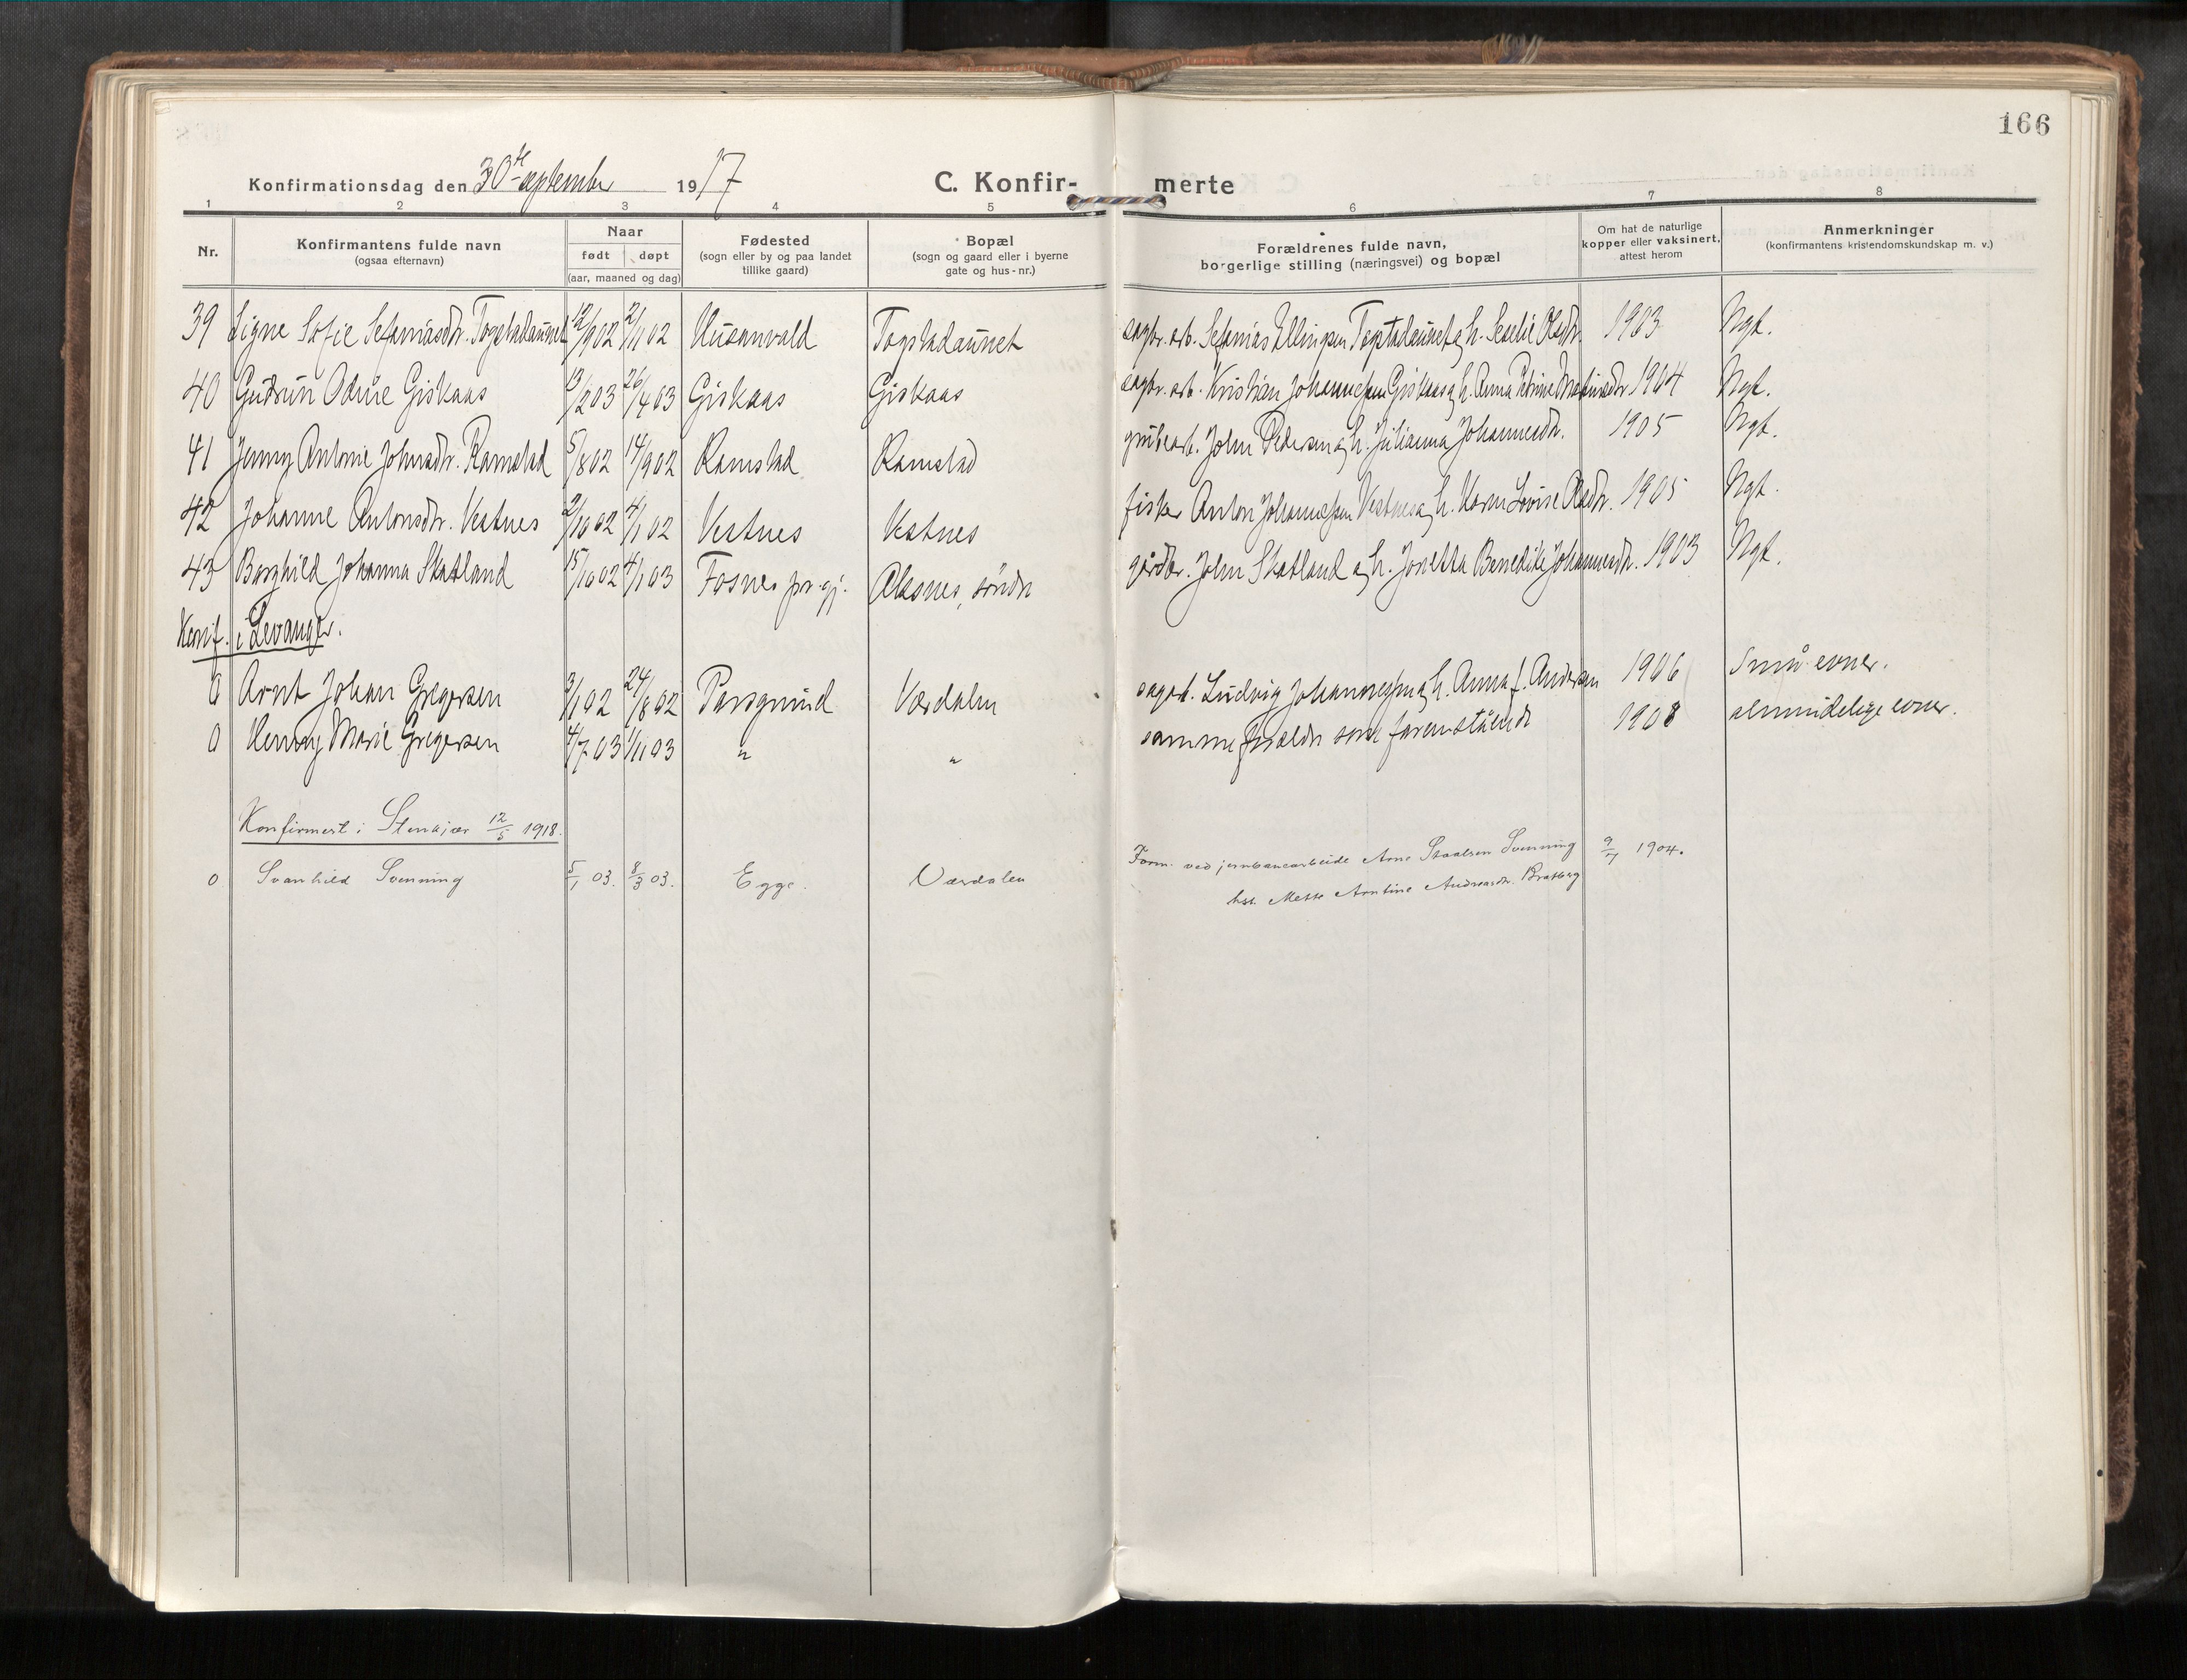 166
Konfirmationsdag den 30te september 1917
C. Konfir- merte
1 2 3 4 5 6 7 8
Nr.
Konfirmantens fulde navn
(ogsaa efternavn)
Naar
født døpt
(aar, maaned og dag)
Fødested
(sogn eller by og paa landet
tillike gaard)
Bopæl
(sogn og gaard eller i byerne
gate og hus-nr.)
Forældrenes fulde navn,
borgerlige stilling (næringsvei) og bopæl
Om hat de naturlige
kopper eller vaksinert,
attest herom
Anmerkninger
(konfirmantens kristendomskundskap m. v.)
39 Signe Sofie Sefaniasdtr. Togstadaunet 12/9 02 2/11 02 Togstadaunet sagbr. arb. Sefanias Ellingsen Togstadaunet og h. Olsdtr. 1903 Ngt.
40 Gudrun Odine Giskaas 13/2 03 26/4 03 Giskaas Giskaas sagbr. arb. Kristian Johannessen Giskaas og h. Anna Petrine 1904 Ngt.
41 Jenny Antonie Johnsdtr. Ramstad 5/8 02 14/9 02 Ramstad Ramstad grubearb. John Pedersen og h. Julianna Johannesdtr. 1905 Ngt.
42 Johanne Antonsdtr. Vestnes 2/10 02 4/1 02 Vestnes Vestnes fisker Anton Johannessen Vestnes og h. Karen Lovise Olsdtr. 1905 Ngt.
43 Borghild Johanna Skatland 15/10 02 4/1 03 Fosnes pr.gj. Aksnes, søndre gårdbr. John Skatland og h. Jonetta Benedikte Johannesdtr. 1903 Ngt.
Konf. i Levanger.
0 Arnt Johan Gregersen 3/1 02 24/8 02 Porsgrund Værdalen sagarb. Ludvig Johannessen og h. Anna f. Andersen 1906 Små evner.
0 Henny Marie Gregersen 4/7 03 1/11 03 " " samme forældre som foranstående 1908 almindelige evner.
Konfirmert i Stenkjær 12/5 1918.
0 Svanhild Svenning 5/1 03. 8/3 03. Egge. Værdalen Form. ved jernbanearbeide Arne Staalsen Svenning 9/7 1904.
hst. Mette Arntine Andreasdtr. Bratberg